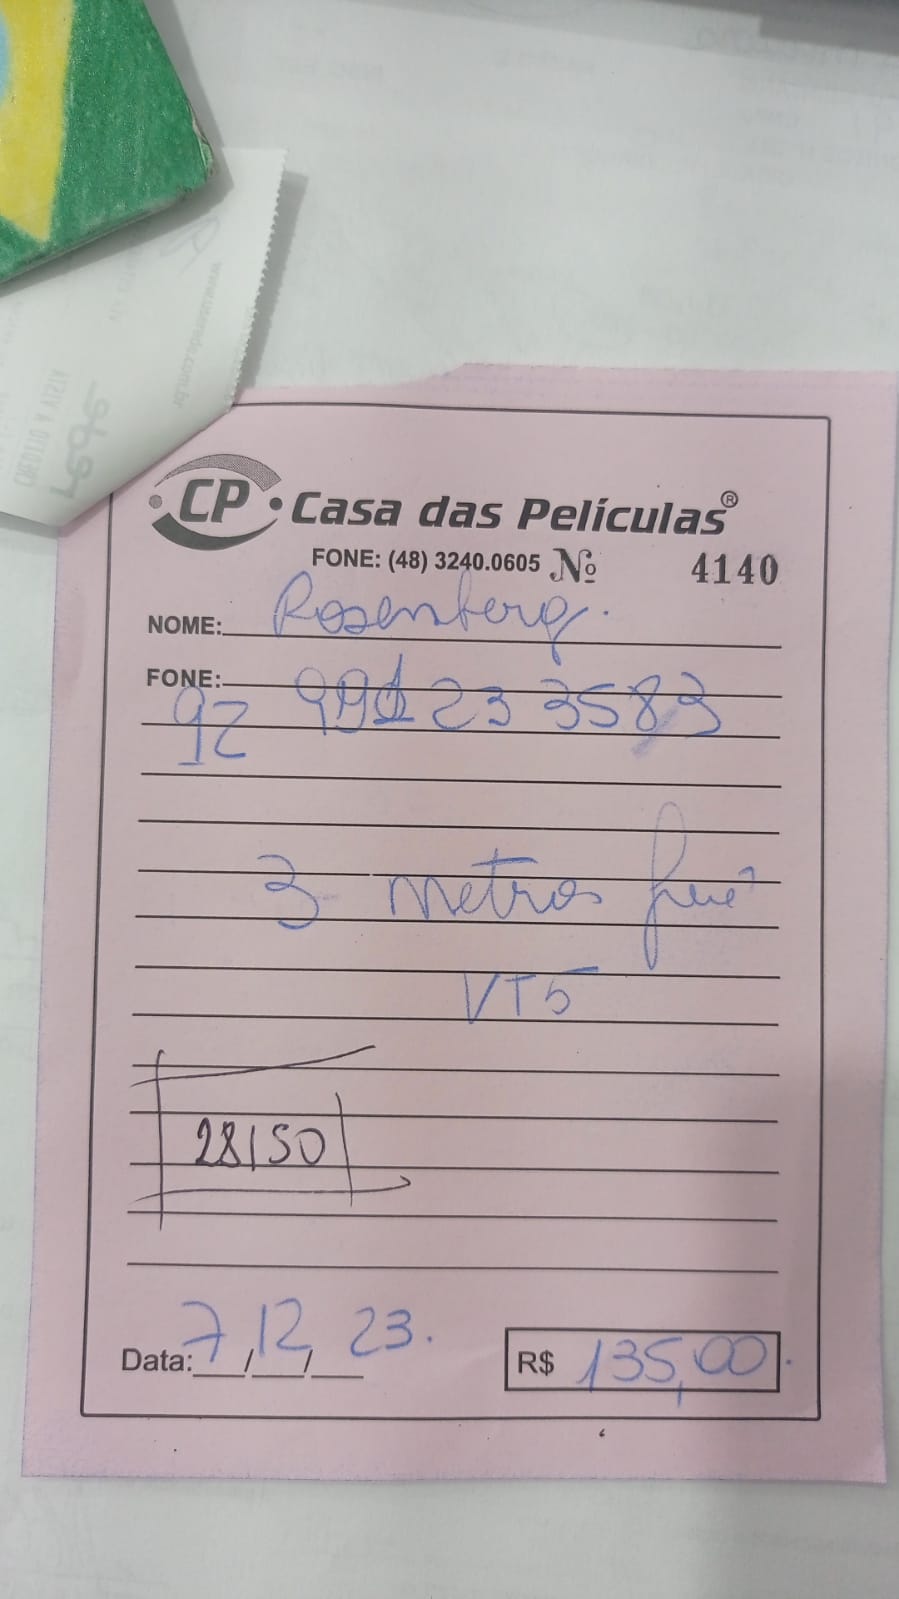 CP Casa das Películas®
FONE: (48) 3240.0605 Nº 4140
NOME: Rosenberg.
FONE: 99123 3583
92
3 metros fumê
VT5
28150
Data: 7/12/23.
R$ 135,00.
CREDITO A VISTA
rede